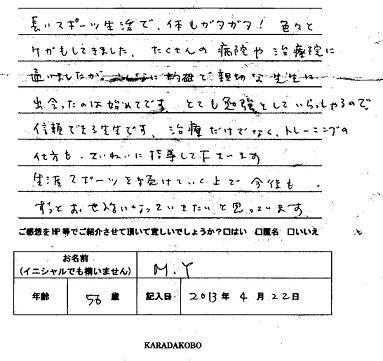 長いスポーツ生活で、体もガタガタ! 色々と
ケガもしてきました。たくさんの病院や治療院に
通いましたが、こんなに的確で親切な先生に
出会ったのは始めてです。とても勉強としていらっしゃるので
信頼できる先生です。治療だけでなく、トレーニングの
仕方も、ていねいに指導して下さいます
生涯スポーツを続けていく上で今後も、
ずっとおせわになっていきたいと思っています。
ご感想をHP等でご紹介させて頂いて宜しいでしょうか?□はい □匿名 □いいえ
お名前
(イニシャルでも構いません)
M.Y
年齢 56 歳 記入日 2013年 4月 22日
KARADAKOBO